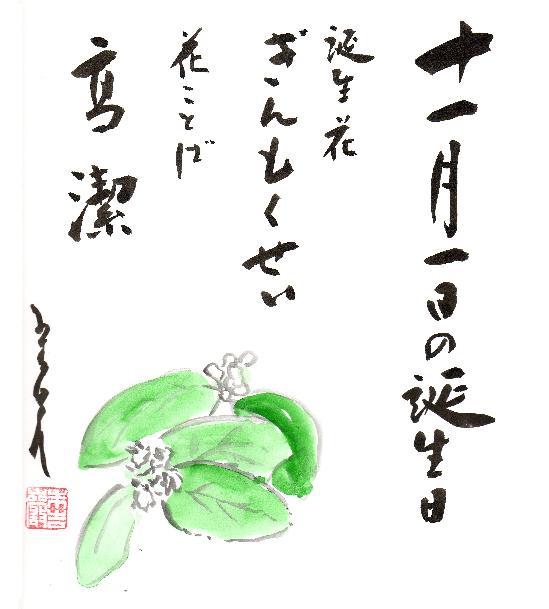 十一月一日の誕生日
誕生花
ぎんもくせい
花ことば
高潔